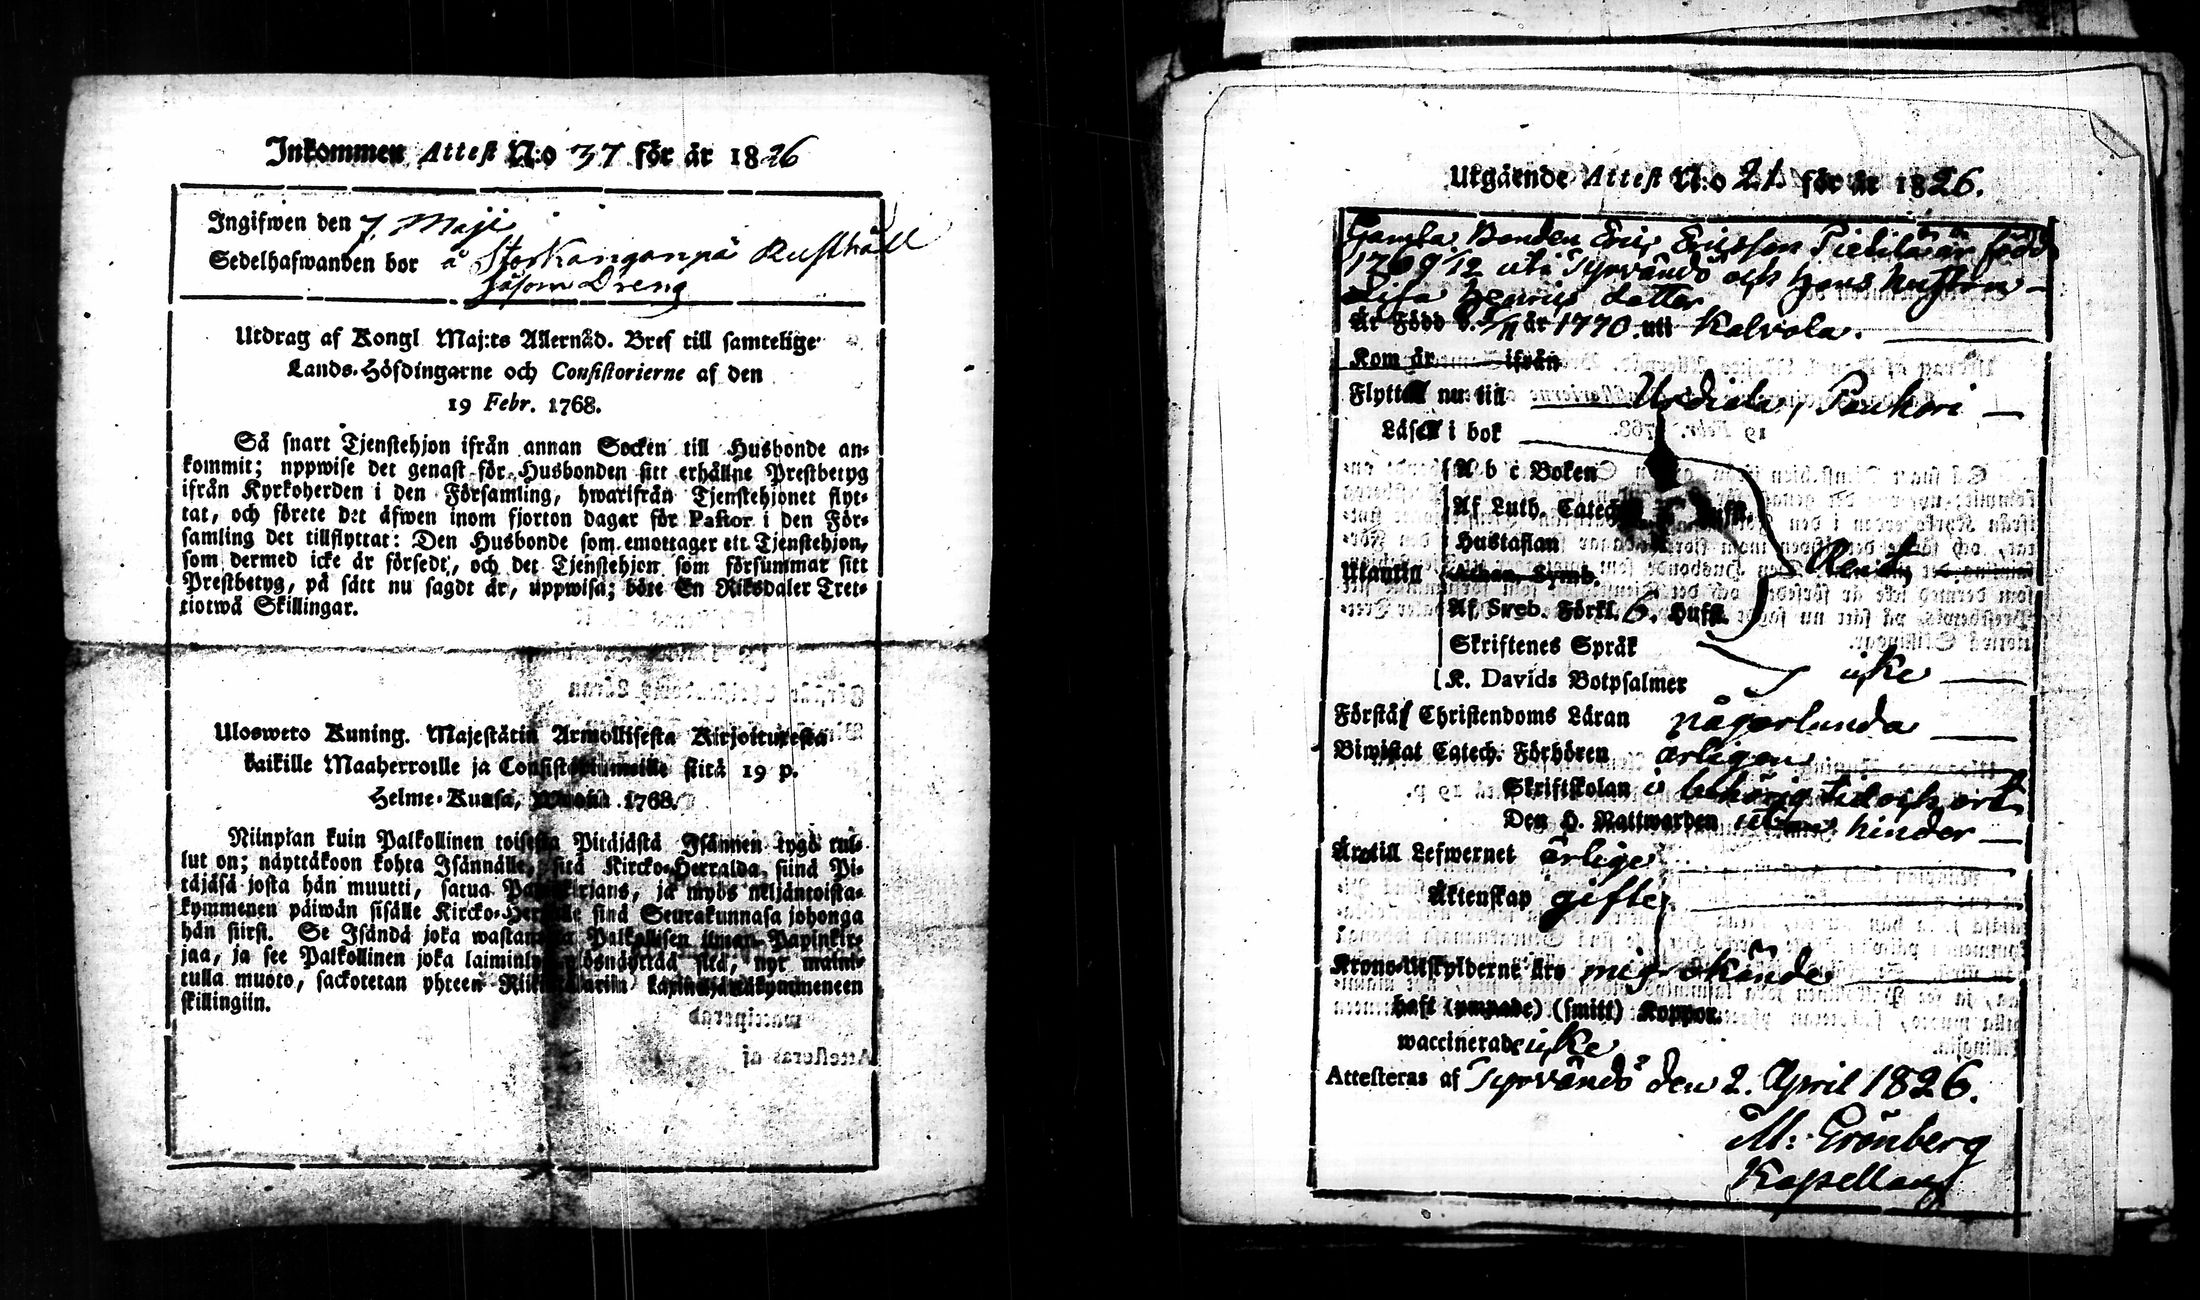 Inkommen Attest N:o 37 för år 1826
Ingifwen den 7. Maji
Sedelhafwanden bor å Storkanganpä Rusthåll
såsom Dreng
Utdrag af Kongl Maj:ts Allernåd. Bref till samtelige
Lands-Höfdingarne och Consistorierne af den
19 Febr. 1768.
Så snart Tjenstehjon ifrån annan Socken till Husbonde an-
kommit; uppwise det genast för Husbonden sitt erhållne Prestbetyg
ifrån Kyrkoherden i den Församling, hwarifrån Tjenstehjonet flyt-
tat, och förete det äfwen inom fjorton dagar för Pastor i den För-
samling det tillflyttat: Den Husbonde som emottager ett Tjenstehjon,
som dermed icke är försedt, och det Tjenstehjon som försummar sitt
Prestbetyg, på sätt nu sagdt är, uppwisa; böte En Riksdaler Tret-
tiotwå Skillingar.
Ulosweto Kuning. Majestätin Armollisesta Kirjoituxesta
kaikille Maaherroille ja Consistoriumeille siitä 19 p.
Helme-Kuusa, Wuona 1768.
Niinpian kuin Palkollinen toisesta Pitäjästä Isännen tygö tul-
lut on; näyttäkoon kohta Isännälle, sitä Kircko-Herralda siinä Pi-
täjäsä josta hän muutti, saatua Papinkirjans, ja myös neljäntoista-
kymmenen päiwän sisälle Kircko-Herralle sinä Seurakunnasa johonga
hän siirst. Se Isändä joka wastanotta Palkollisen ilman Papinkir-
jaa, ja see Palkollinen joka laiminlyö ylösnäyttää sitä, nyt maini-
tulla muoto, sackotetan yhteen Riikin Talarin kaxineljättäkymmeneen
skillingiin.
Utgående Attest N:o 21. för år 1826.
Gamla Bonden Eric Ericsson Pietilä är född
1769 /12 uti Tyrvändö och Hans hustru
Lisa Henrics dotter
Är Född d. /11 år 1770 uti Kalvola.
Kom år ifrån
Flytta nu till Urdiala, Paukori
Läsa i bok
A b c Boken
Af Luth. Catech.
Hustaflan
Utantill Athan. Symb. Rent
Af Sweb. Förkl. 6. Hufst.
Skriftenes Språk
K. Davids Botpsalmer icke
Förstå Christendoms Läran någorlunda
Biwistat Catech. Förhören årligen
Skriftskolan i behörig tid och ort
Den H. Nattwarden utan hinder
Äro till Lefwernet ärlige
Äktenskap gifte
Krono-Utskylderne äro mig okände
haft (ympade) (smitt) Koppor.
waccinerade icke
Attesteras af Tyrvändö den 2. April 1826.
M: Grönberg
Kapellan